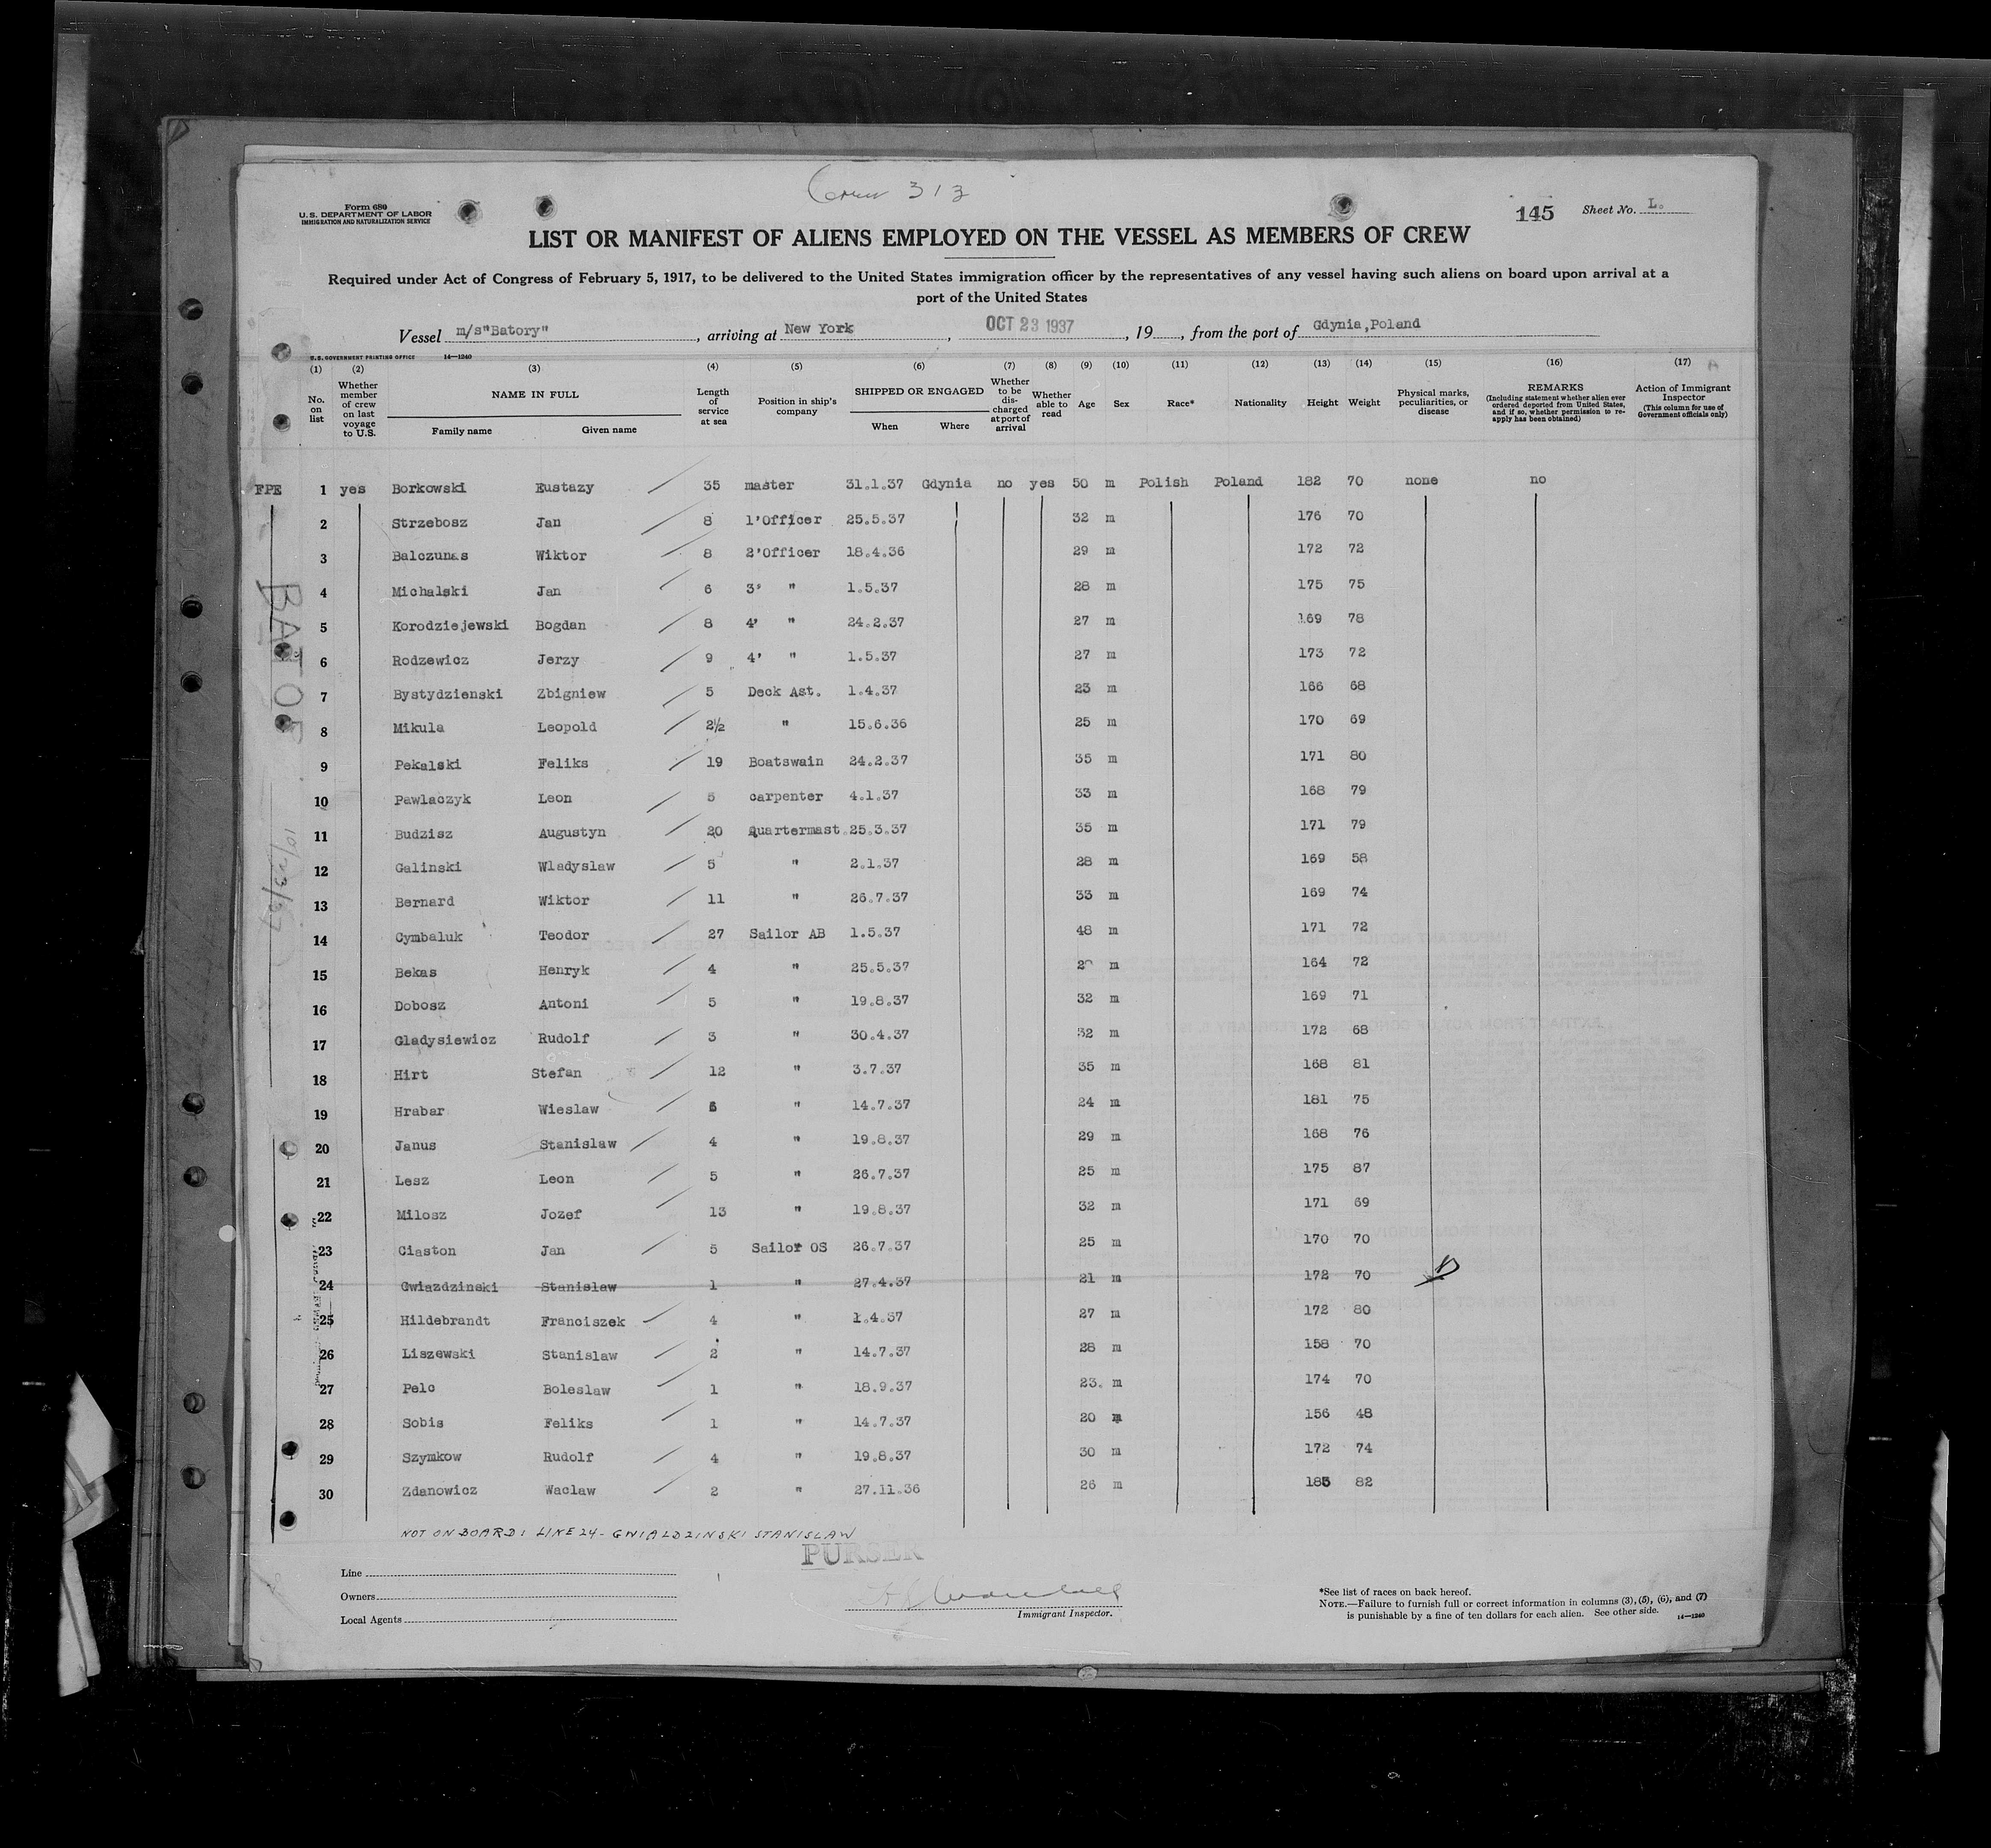 Crew 313
Form 680
U.S. DEPARTMENT OF LABOR
IMMIGRATION AND NATURALIZATION SERVICE
145 Sheet No. L.
LIST OR MANIFEST OF ALIENS EMPLOYED ON THE VESSEL AS MEMBERS OF CREW
Required under Act of Congress of February 5, 1917, to be delivered to the United States immigration officer by the representatives of any vessel having such aliens on board upon arrival at a
port of the United States
Vessel m/s"Batory", arriving at New York, OCT 23 1937, 19, from the port of Gdynia,Poland
U.S. GOVERNMENT PRINTING OFFICE 14—1240
(1) (2) (3) (4) (5) (6) (7) (8) (9) (10) (11) (12) (13) (14) (15) (16) (17)
No. on list
Whether member of crew on last voyage to U.S.
NAME IN FULL
Family name Given name
Length of service at sea
Position in ship's company
SHIPPED OR ENGAGED
When Where
Whether to be discharged at port of arrival
Whether able to read
Age
Sex
Race*
Nationality
Height
Weight
Physical marks, peculiarities, or disease
REMARKS
(Including statement whether alien ever ordered deported from United States, and if so, whether permission to reapply has been obtained)
Action of Immigrant Inspector
(This column for use of Government officials only)
FPE 1 yes Borkowski Eustazy 35 master 31.1.37 Gdynia no yes 50 m Polish Poland 182 70 none no
2 Strzebosz Jan 8 1'Officer 25.5.37 32 m 176 70
3 Balczunas Wiktor 8 2'Officer 18.4.36 29 m 172 72
4 Michalski Jan 6 3' " 1.5.37 28 m 175 75
5 Korodziejewski Bogdan 8 4' " 24.2.37 27 m 169 78
6 Rodzewicz Jerzy 9 4' " 1.5.37 27 m 173 72
7 Bystydzienski Zbigniew 5 Deck Ast. 1.4.37 23 m 166 68
8 Mikula Leopold 2½ " 15.6.36 25 m 170 69
9 Pekalski Feliks 19 Boatswain 24.2.37 35 m 171 80
10 Pawlaczyk Leon 5 carpenter 4.1.37 33 m 168 79
11 Budzisz Augustyn 20 Quartermast 25.3.37 35 m 171 79
12 Galinski Wladyslaw 5 " 2.1.37 28 m 169 58
13 Bernard Wiktor 11 " 26.7.37 33 m 169 74
14 Cymbaluk Teodor 27 Sailor AB 1.5.37 48 m 171 72
15 Bekas Henryk 4 " 25.5.37 m 164 72
16 Dobosz Antoni 5 " 19.8.37 32 m 169 71
17 Gladysiewicz Rudolf 3 " 30.4.37 32 m 172 68
18 Hirt Stefan 12 " 3.7.37 35 m 168 81
19 Hrabar Wieslaw " 14.7.37 24 m 181 75
20 Janus Stanislaw 4 " 19.8.37 29 m 168 76
21 Lesz Leon 5 " 26.7.37 25 m 175 87
22 Milosz Jozef 13 " 19.8.37 32 m 171 69
23 Ciaston Jan 5 Sailor OS 26.7.37 25 m 170 70
24 Gwiazdzinski Stanislaw 1 " 27.4.37 21 m 172 70
25 Hildebrandt Franciszek 4 " 1.4.37 27 m 172 80
26 Liszewski Stanislaw 2 " 14.7.37 28 m 158 70
27 Pelc Boleslaw 1 " 18.9.37 23. m 174 70
28 Sobis Feliks 1 " 14.7.37 20 m 156 48
29 Szymkow Rudolf 4 " 19.8.37 30 m 172 74
30 Zdanowicz Waclaw 2 " 27.11.36 26 m 185 82
10/23/37
NOT ON BOARD: LINE 24 - GWIALDZINSKI STANISLAW
PURSER
Line
Owners
Local Agents
Immigrant Inspector.
*See list of races on back hereof.
NOTE.—Failure to furnish full or correct information in columns (3), (5), (6), and (7)
is punishable by a fine of ten dollars for each alien. See other side. 14—1240